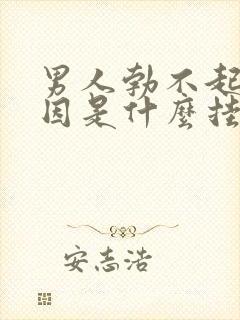 男人勃不起
因是什麼挂
安志浩